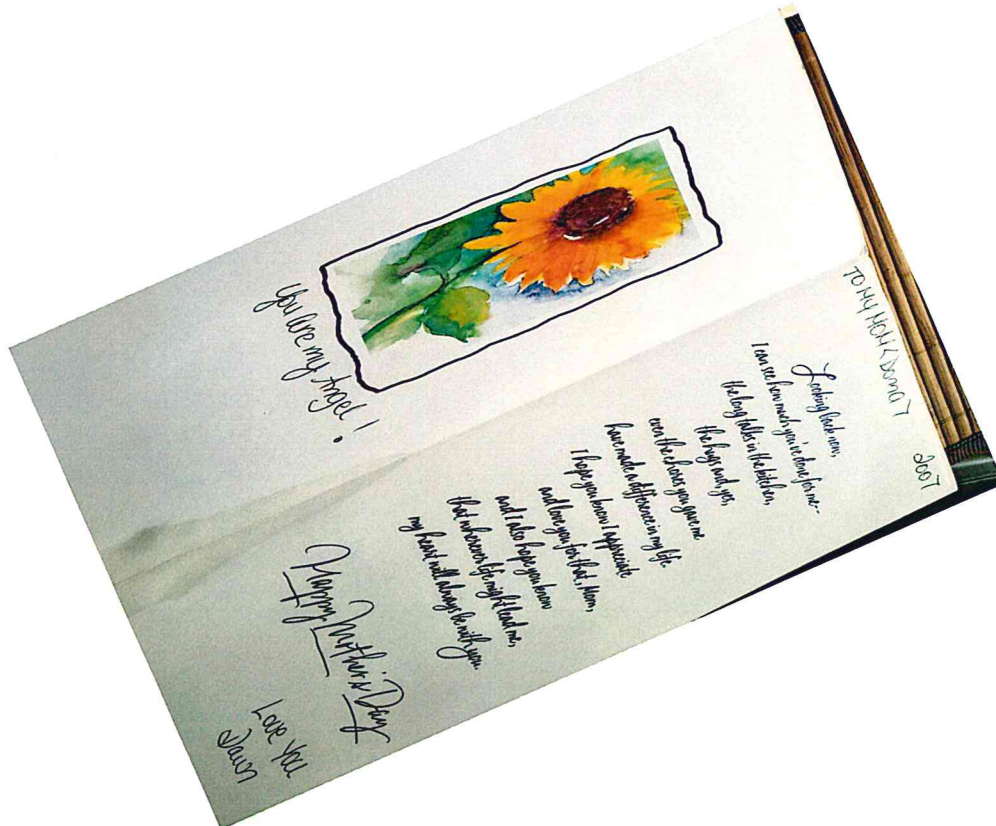 You are my Angel!
TO MY MOM
2007
Looking back now,
I can see how much you've done for me--
the long talks in the kitchen,
the hugs and, yes,
even the chores you gave me
have made a difference in my life.
I hope you know I appreciate
and love you for that, Mom,
and I also hope you know
that wherever life might lead me,
my heart will always be with you.
Happy Mother's Day
Love You
Dawn